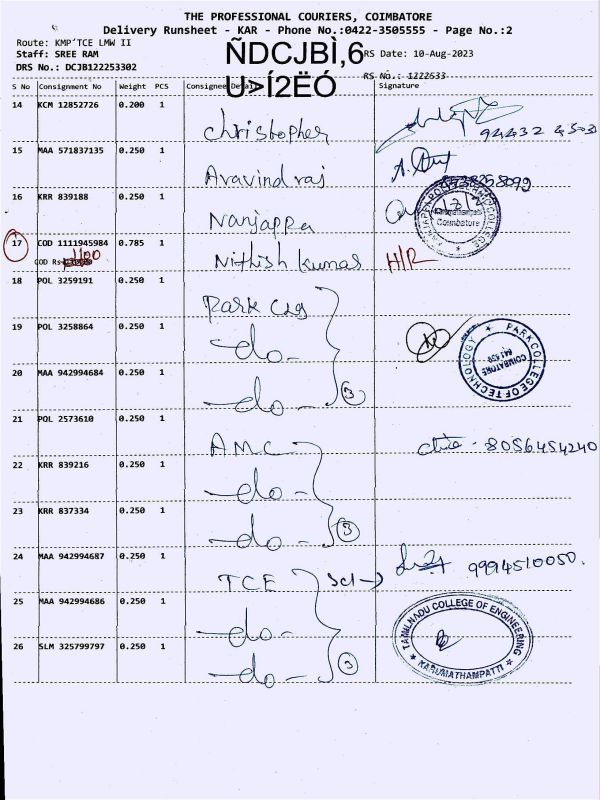 THE PROFESSIONAL COURIERS, COIMBATORE
Delivery Runsheet - KAR - Phone No.:0422-3505555 - Page No.:2
Route: KMP'TCE LMW II
Staff: SREE RAM
DRS No.: DCJB122253302
ÑDCJBÌ,6
U>Í2ËÓ
RS Date: 10-Aug-2023
RS No.: 1222533
S No Consignment No Weight PCS Consignee Details Signature
14 KCM 12852726 0.200 1 Christopher
15 MAA 571837135 0.250 1 Aravind raj
16 KRR 839188 0.250 1 Nanjappa
Coimbatore
17 COD 1111945984 0.785 1 Nithish kumar H/R
COD Rs 1100
18 POL 3259191 0.250 1 Park Clg
19 POL 3258864 0.250 1 -do-
PARK COLLEGE OF TECHNOLOGY
COIMBATORE
20 MAA 942994684 0.250 1 -do- 3
21 POL 2573610 0.250 1 AMC 8056454240
22 KRR 839216 0.250 1 -do-
23 KRR 837334 0.250 1 -do- 3
24 MAA 942994687 0.250 1 TCE 9994510050.
25 MAA 942994686 0.250 1 -do-
TAMILNADU COLLEGE OF ENGINEERING
KARUMATHAMPATTI
26 SLM 325799797 0.250 1 -do- 3